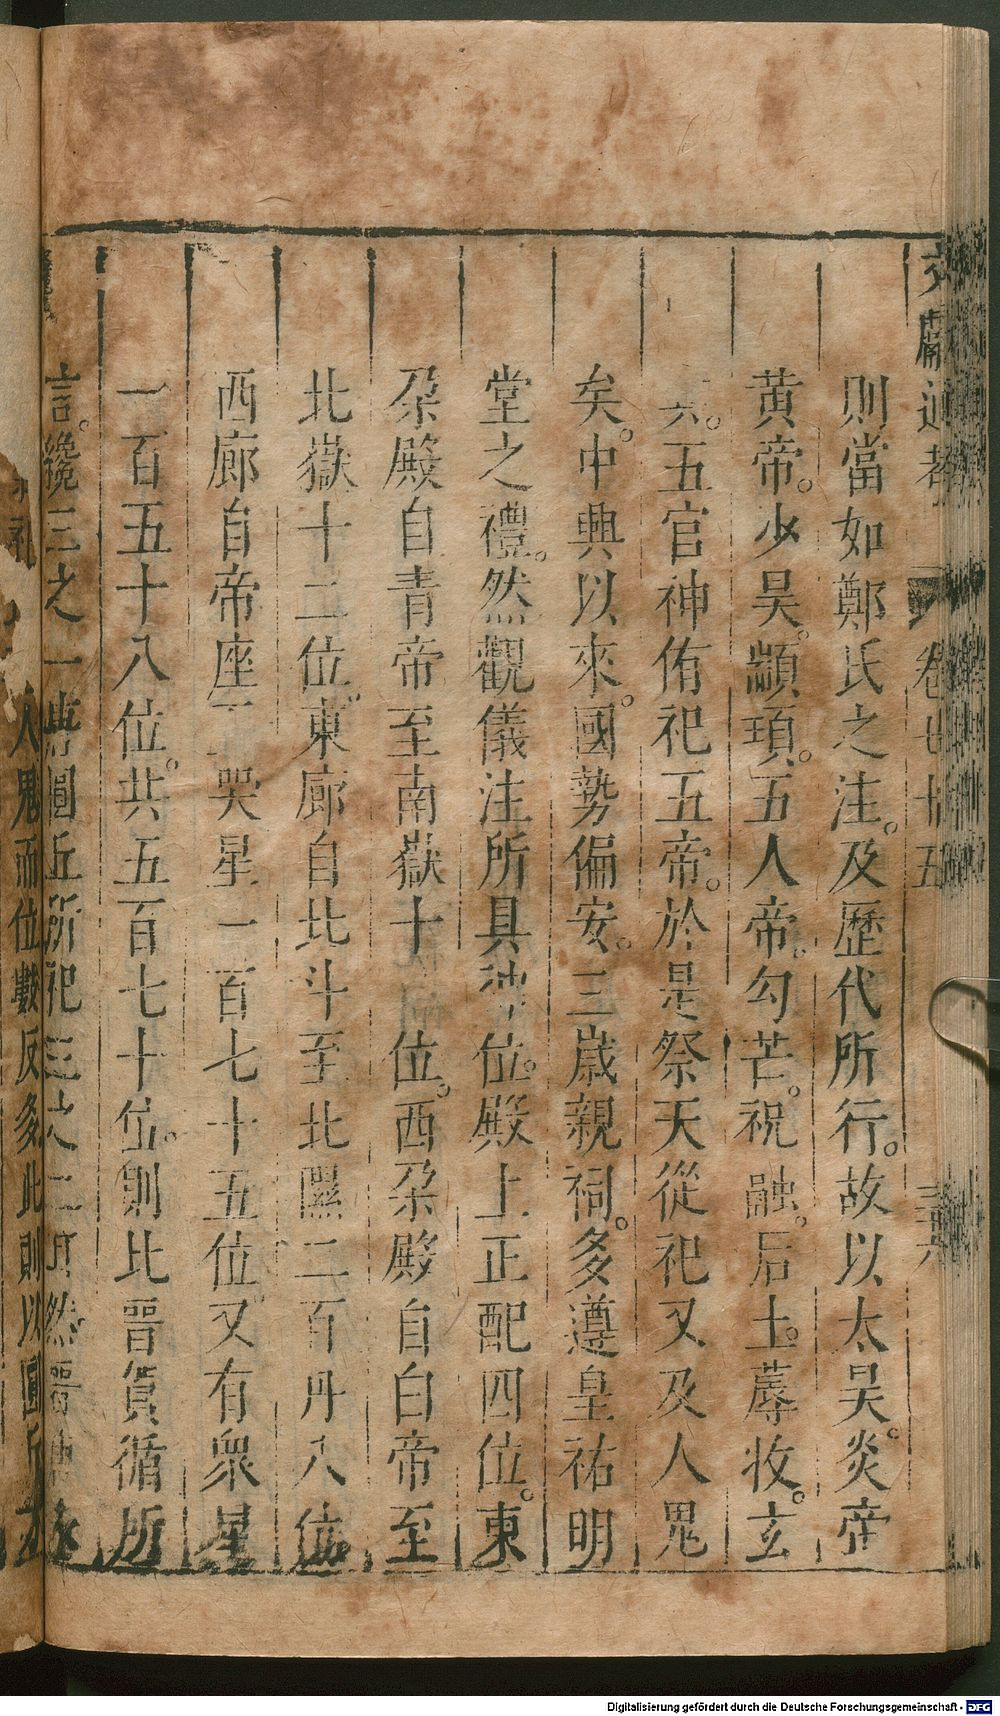 文獻通考 卷七十五
則當如鄭氏之注。及歷代所行。故以太昊。炎帝
黄帝。少昊。顓頊。五人帝。勾芒。祝融。后土。蓐收。玄
六。五官神侑祀五帝。於是祭天從祀又及人鬼
矣。中興以來。國勢偏安。三歲親祠。多遵皇祐明
堂之禮。然觀儀注所具神位。殿上正配四位。東
朶殿自青帝至南嶽十 位。西朶殿自白帝至
北嶽十二位。東廊自北斗至北 二百 八位
西廊自帝座 哭星一百七十五位又有衆星
一百五十八位。共五百七十位。則比晋 循所
言。纔三之一 圓丘所祀三之二耳然晋
人鬼而位數反多此則以圓丘
Digitalisierung gefördert durch die Deutsche Forschungsgemeinschaft - DFG